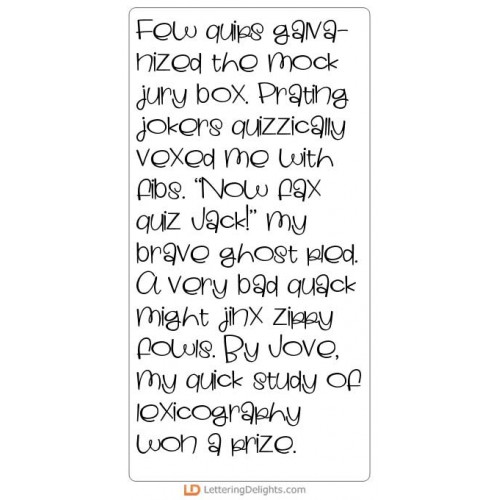 Few quips galva-
nized the mock
jury box. Prating
jokers quizzically
vexed me with
fibs. "Now fax
quiz Jack!" my
brave ghost pled.
A very bad quack
might jinx zippy
fowls. By Jove,
my quick study of
lexicography
won a prize.
LD LetteringDelights.com